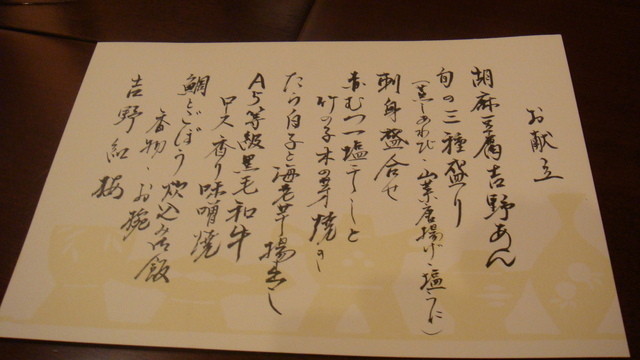 お献立
胡麻豆腐吉野あん
旬の三種盛り
（蒸しあわび・山菜唐揚げ・塩うに）
刺身盛合せ
赤むつ一塩干しと
竹の子木の芽焼き
たら白子と海老芋揚出し
A5等級黒毛和牛
ロース香り味噌焼
鯛とごぼう炊込み御飯
香物・お椀
吉野紅梅